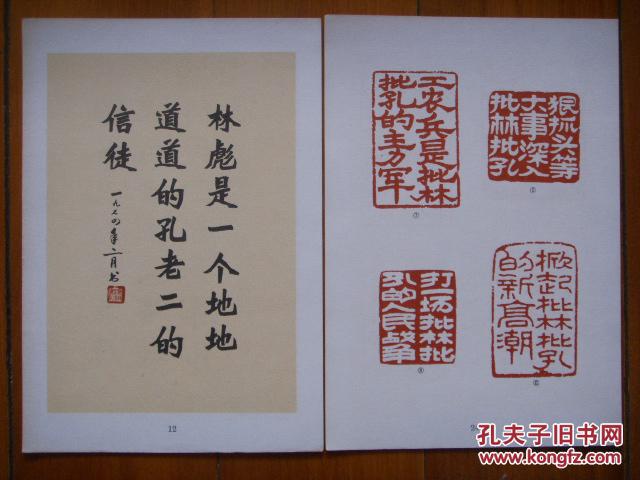 林彪是一个地地
道道的孔老二的
信徒
一九七四年二月书
12
工农兵是批林
批孔的主力军
⑦
狠抓头等
大事深入
批林批孔
打场批林批
孔的人民战争
⑧
掀起批林批孔
的新高潮
2
孔夫子旧书网
www.kongfz.com